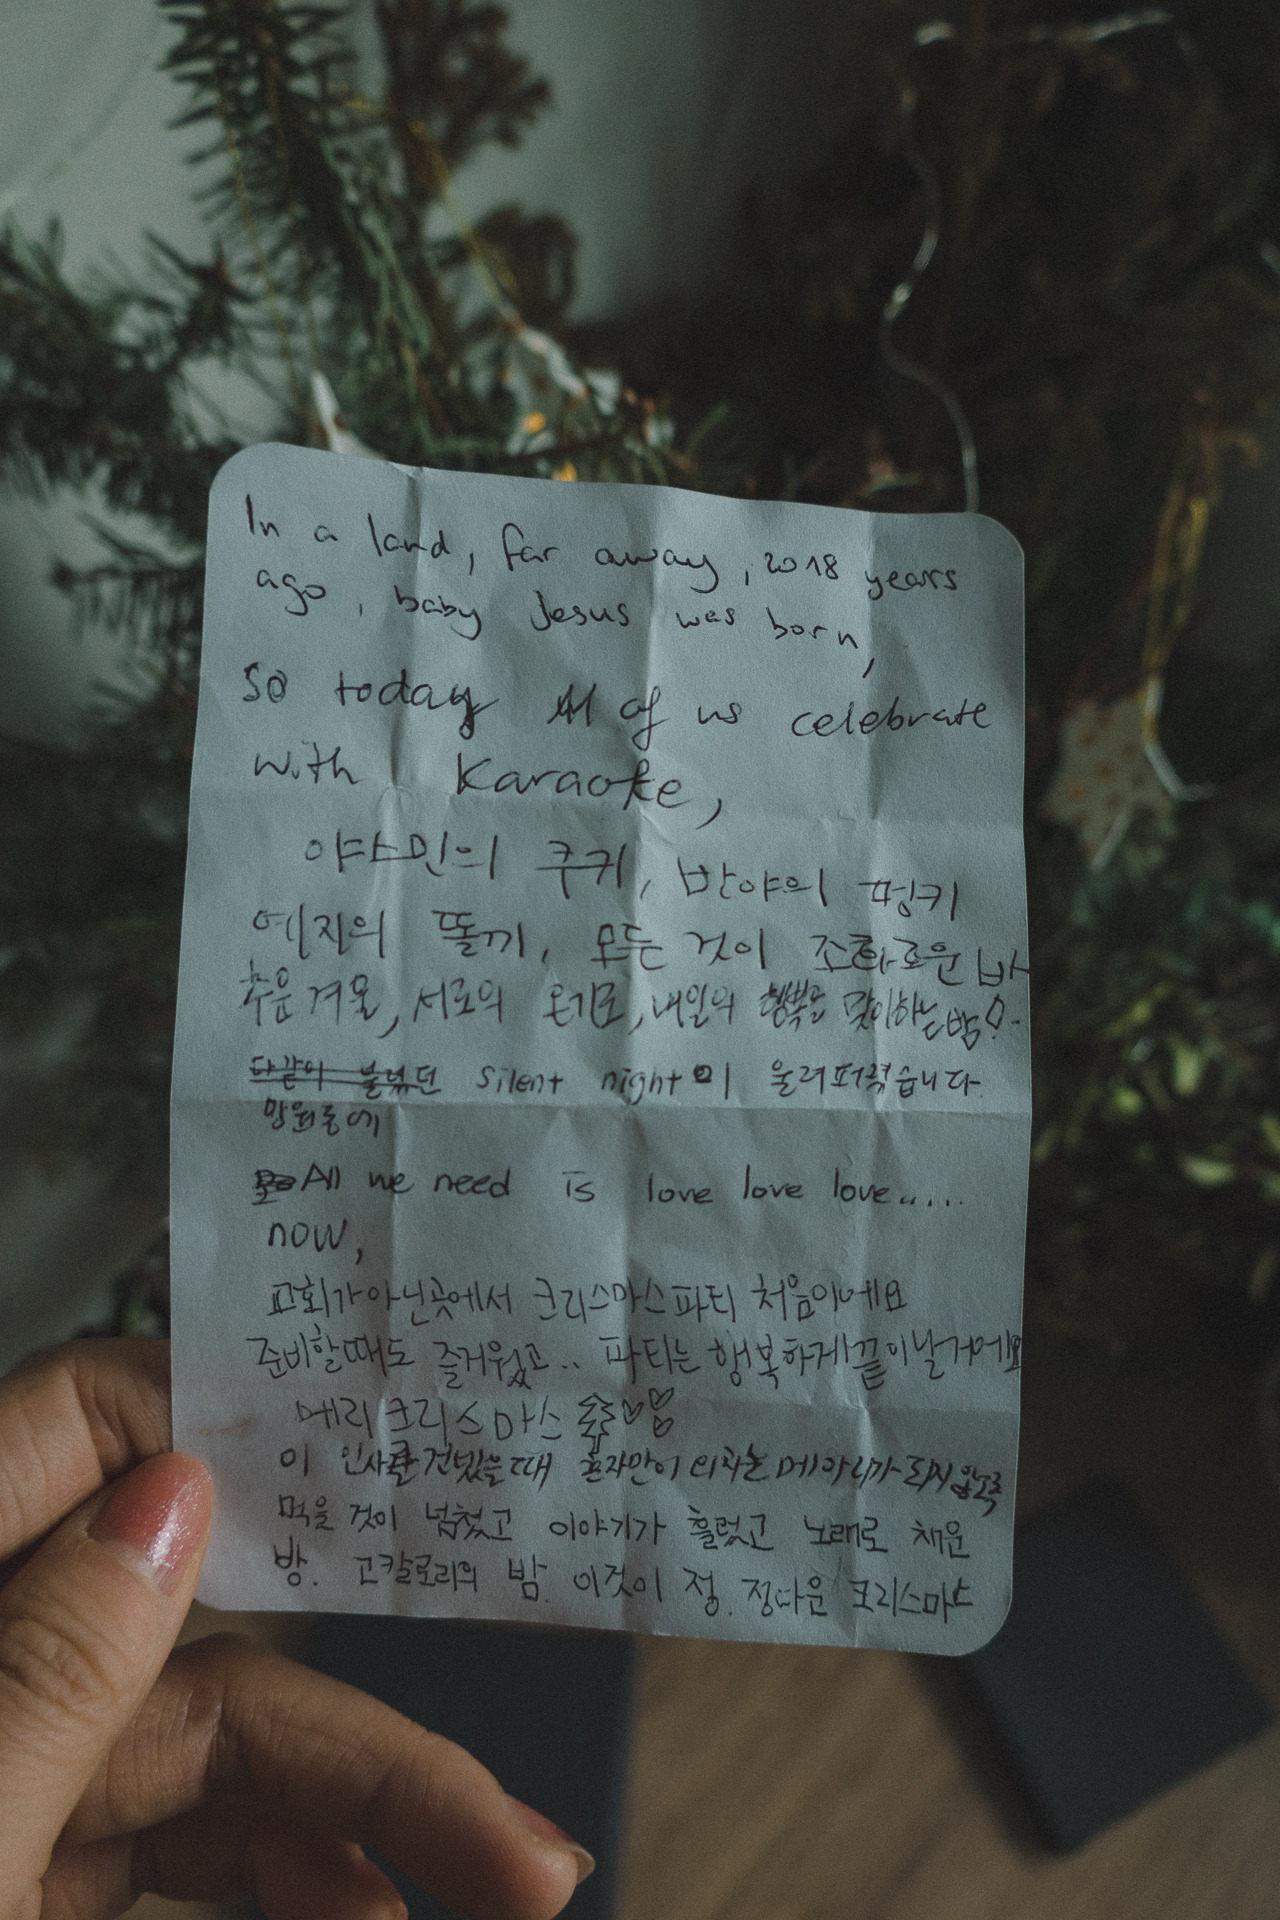 In a land, far away, 2018 years
ago, baby Jesus was born,
so today All of us celebrate
with Karaoke,
야스민의 쿠키, 반야의 펑키
예지의 똘끼, 모든 것이 조화로운 밤
추운 겨울, 서로의 온기로, 내일의 행복을 맞이하는 밤
다같이 불렀던 silent night이 울려퍼졌습니다.
망원동에
All we need is love love love.....
now,
교회가 아닌곳에서 크리스마스파티 처음이네요
준비할때도 즐거웠고.. 파티는 행복하게 끝이날거에요
메리크리스마스
이 인사를 건넸을때 혼자만이 외치는 메아리가 되지 않도록
먹을 것이 넘쳤고 이야기가 흘렀고 노래로 채운
방. 고칼로리의 밤. 이것이 정. 정다운 크리스마스